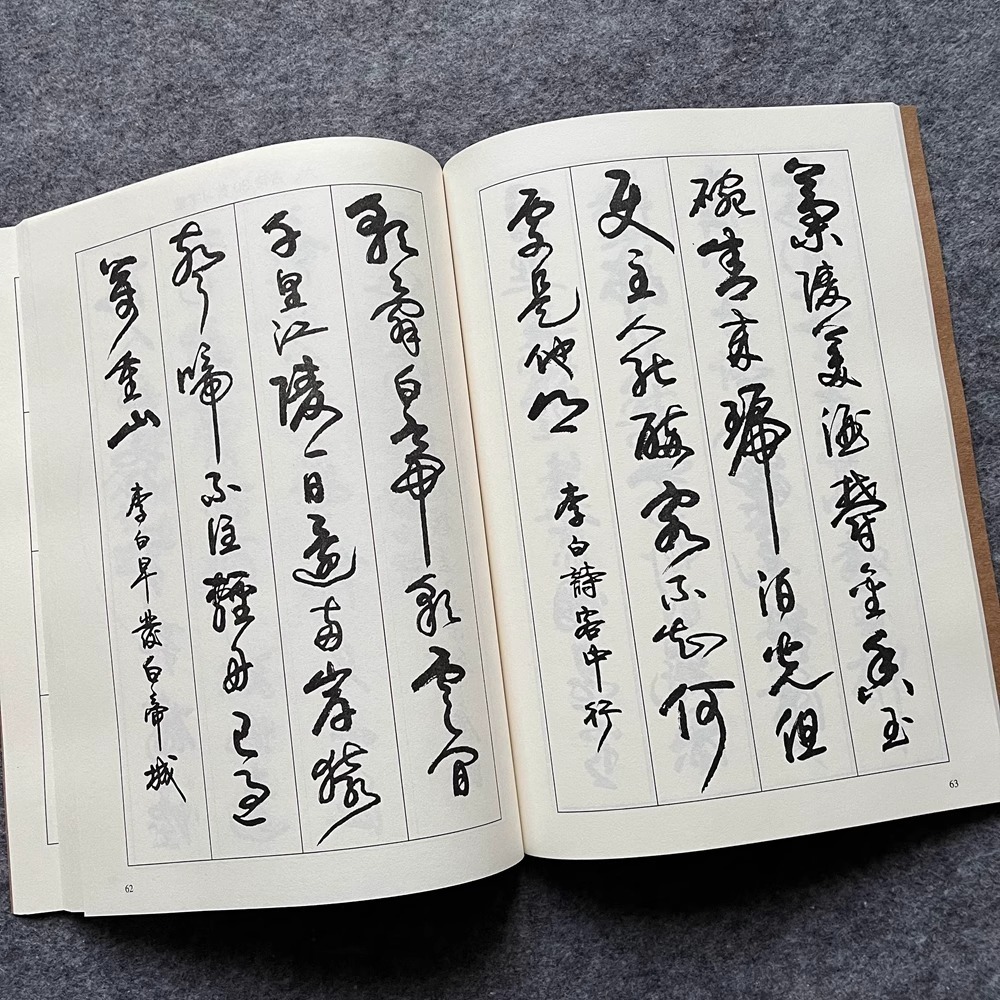 朝辭白帝彩雲間
千里江陵一日還兩岸猿
聲啼不住輕舟已過
萬重山
李白早發白帝城
62
蘭陵美酒鬱金香玉
碗盛來琥珀光但
使主人能醉客不知何
處是他鄉
李白詩客中行
63